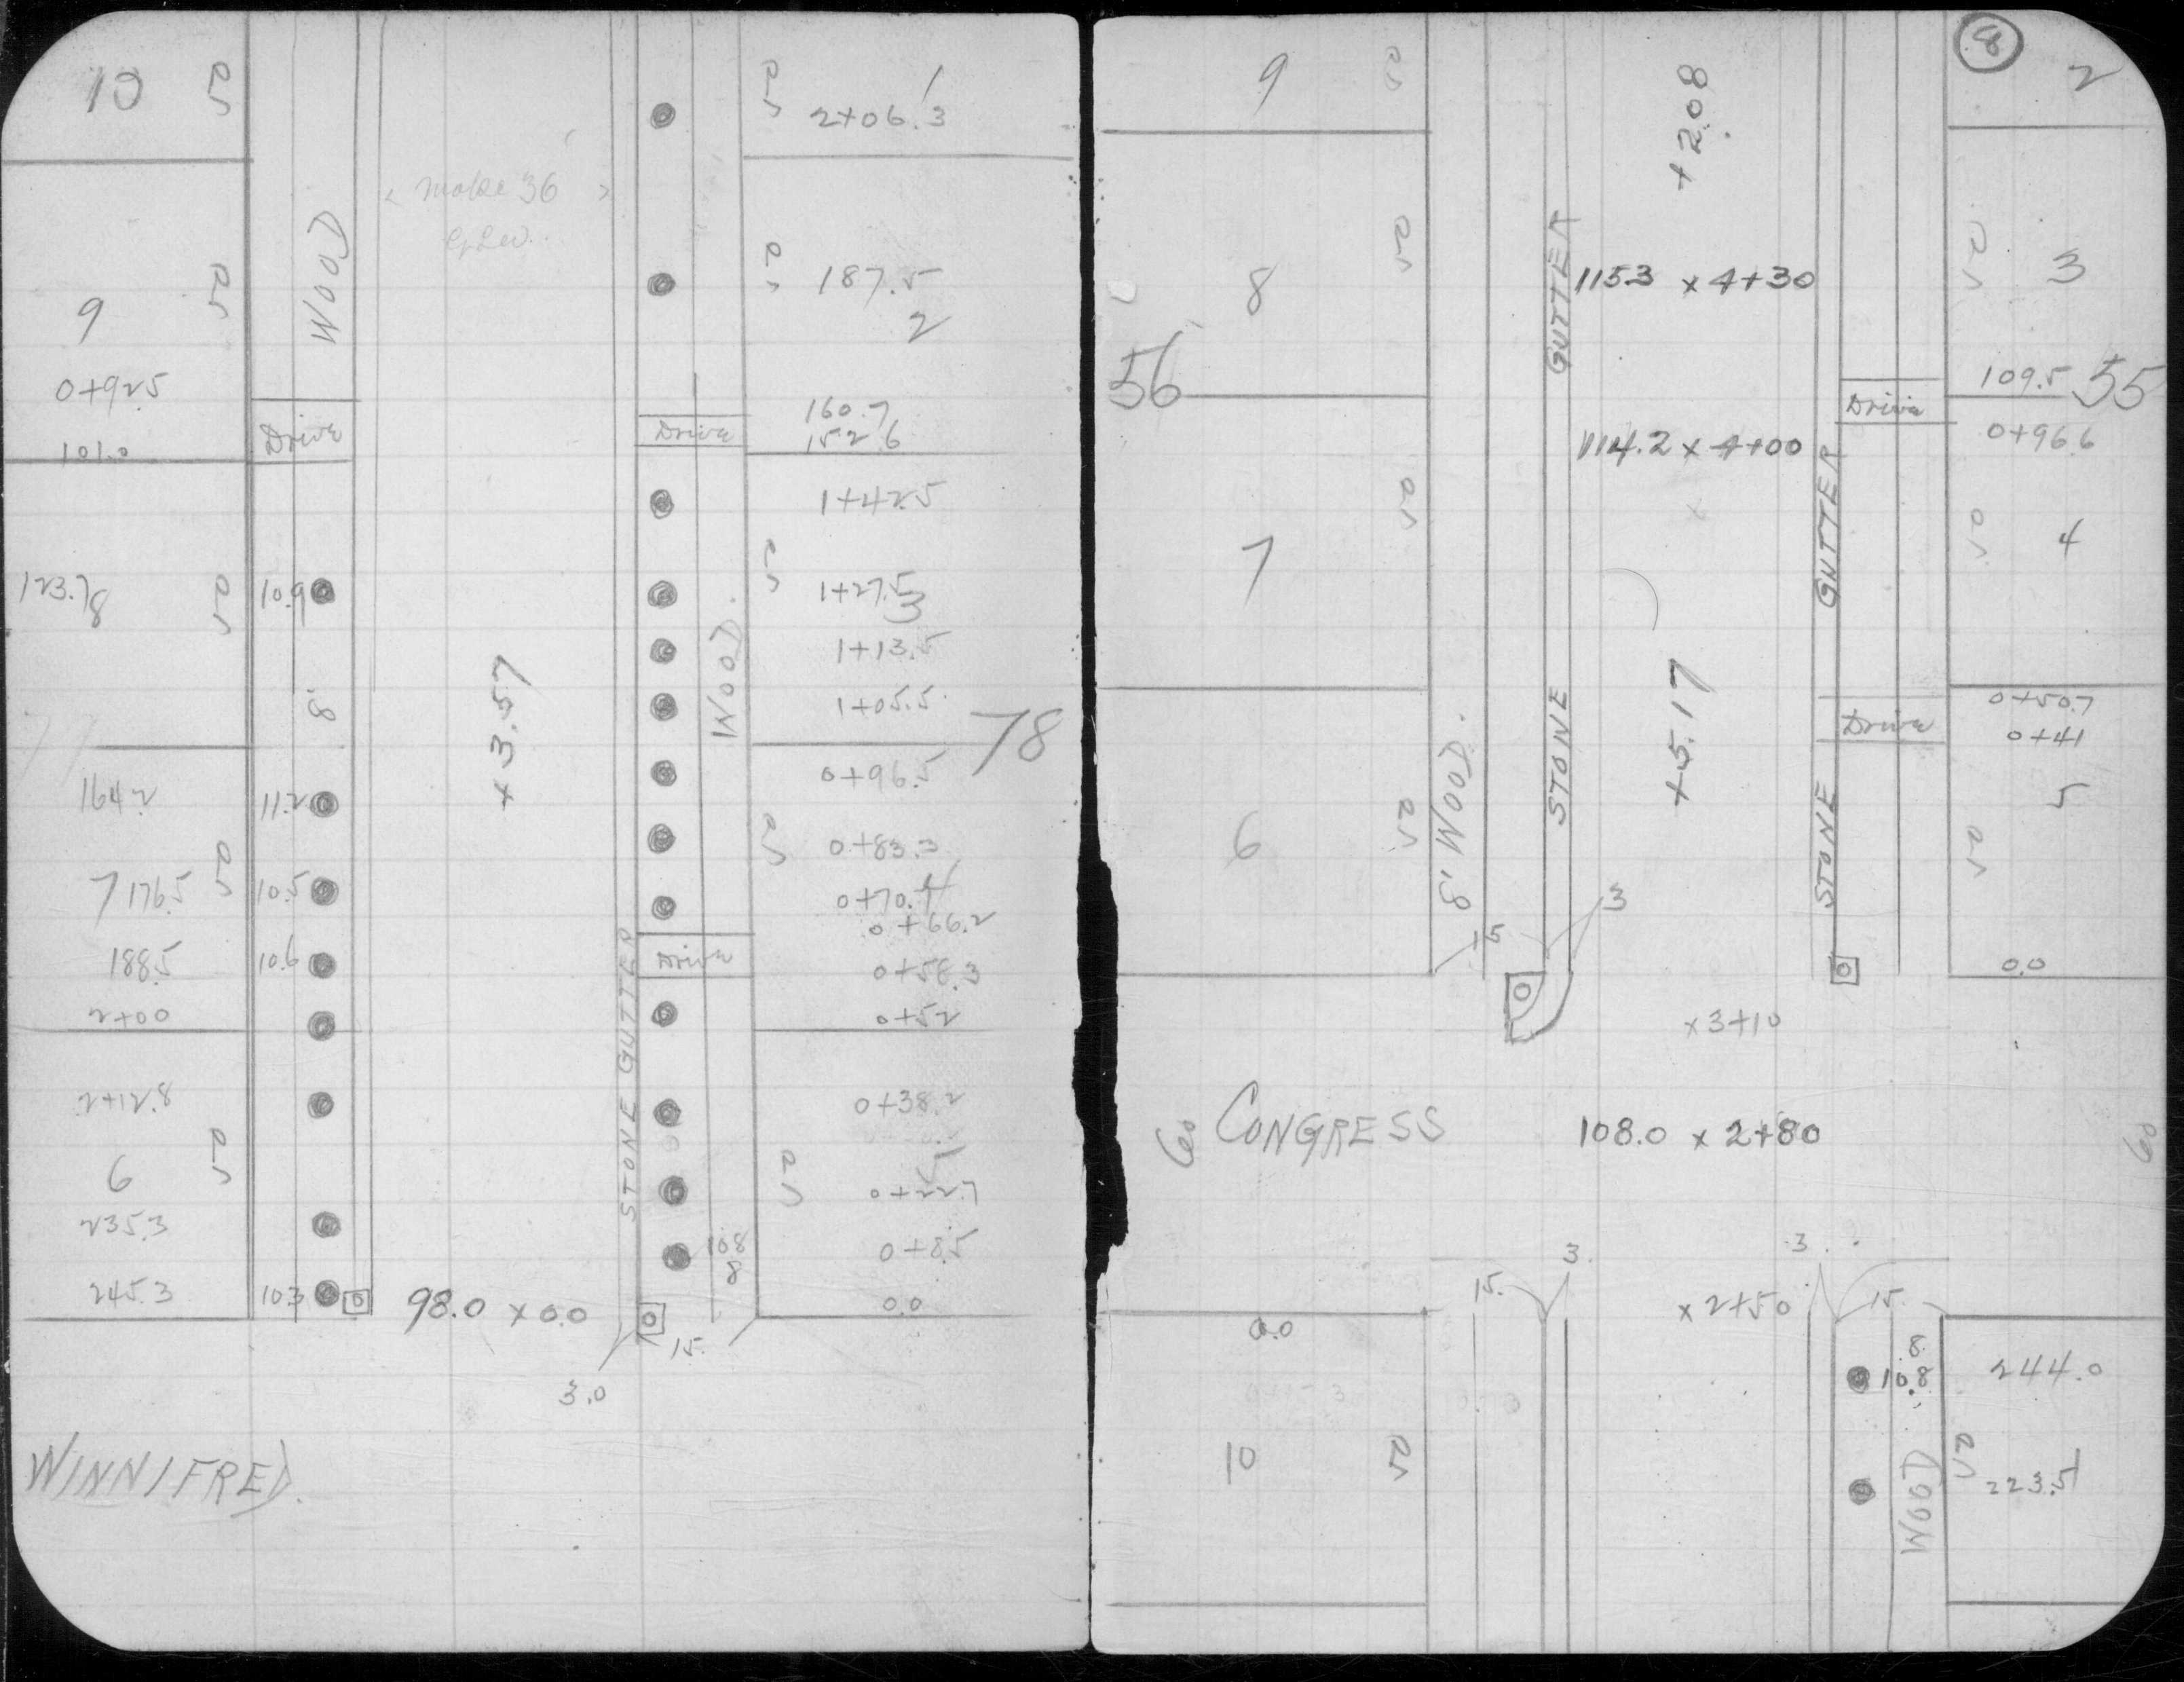 10 50 1
2+06.3
make 36
WOOD
50 50 187.5
9 2
0+92.5
Drive 160.7
101.0 Drive 152.6
1+42.5
50
123.7 10.9 1+27.5
8 50 3
1+13.5
WOOD
8' 1+05.5
+3.57 78
77
0+96.5
164.2 11.2
50 0+83.3
7 176.5 50 10.5 0+70.7 4
0+66.2
188.5 10.6 Drive 0+58.3
2+00 0+52
STONE GUTTER
2+12.8 0+38.2
50 50 5
6 0+22.7
235.3
10.8 0+8.5
8
245.3 10.3 98.0 x 0.0 0.0
15.
3.0
WINNIFRED.
8
9 50 2
+2.08
50 50
8 GUTTER 115.3 x 4+30 3
56 109.5 55
Drive
0+96.6
114.2 x 4+00
50 GUTTER 50
7 4
0+50.7
Drive 0+41
STONE +5.17
5
8' WOOD. STONE
6 50 50
3
15
0.0
x 3+10
60 CONGRESS 108.0 x 2+80 60
3. 3.
15. x 2+50 15.
0.0
8.
10.8 244.0
10 50 50
WOOD 223.5
1